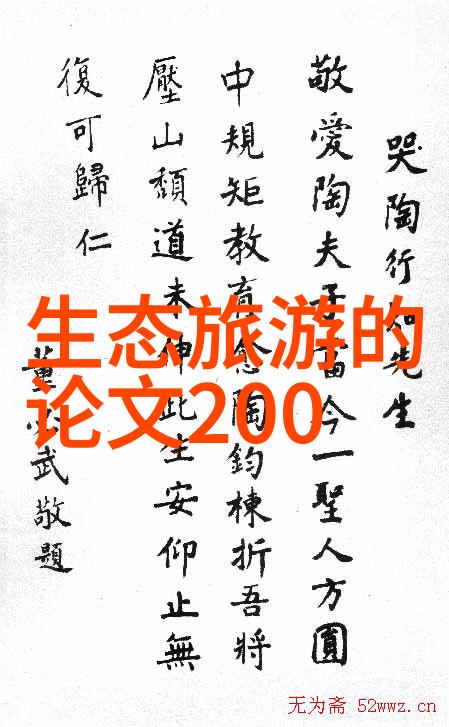 哭陶行知先生
敬愛陶夫子當今一聖人方圓
中規矩教育念陶鈞棟折吾將
壓山頹道未伸此生安仰止無
復可歸仁
董必武敬題
生态旅游的
论文200
无为斋 52wwz.cn